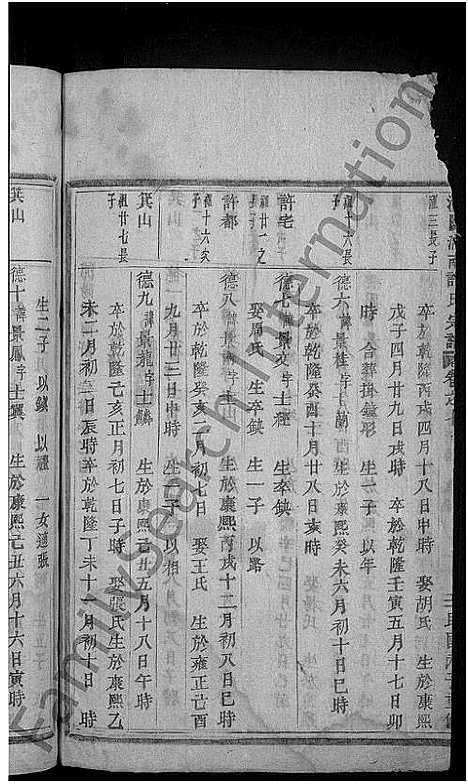 祖三長子
卒於乾隆丙戌四月十八日申時 娶胡氏 生於康熙
戊子四月廿九日戌時 卒於乾隆壬寅五月十七日卯
時 合葬掛鐘形 生一子 以年
祖十六長子
德六 諱景桂 字上蘭 生於康熙癸未六月初十日巳時
卒於乾隆癸酉十月廿八日亥時
許宅
祖廿一之子
德七 諱景文 字士經 生卒缺
娶周氏 生卒缺 生一子 以路
許都
祖十六次子
德八 諱景南 生於康熙丙戌十二月初八日巳時
卒於乾隆癸亥十一月初七日 娶王氏 生於雍正己酉
九月廿三日申時 生一子 以相
箕山
祖廿七長子
德九 諱景龍 字士麟 生於康熙己丑五月十八日午時
卒於乾隆己亥正月初七日子時 娶張氏 生於康熙乙
未二月初二日辰時 卒於乾隆丁未十一月初八日 時
生二子 以鎮 以種 一女適張
箕山
德十 諱景鳳 字士翼 生於康熙己丑六月十六日寅時
FamilySearch International